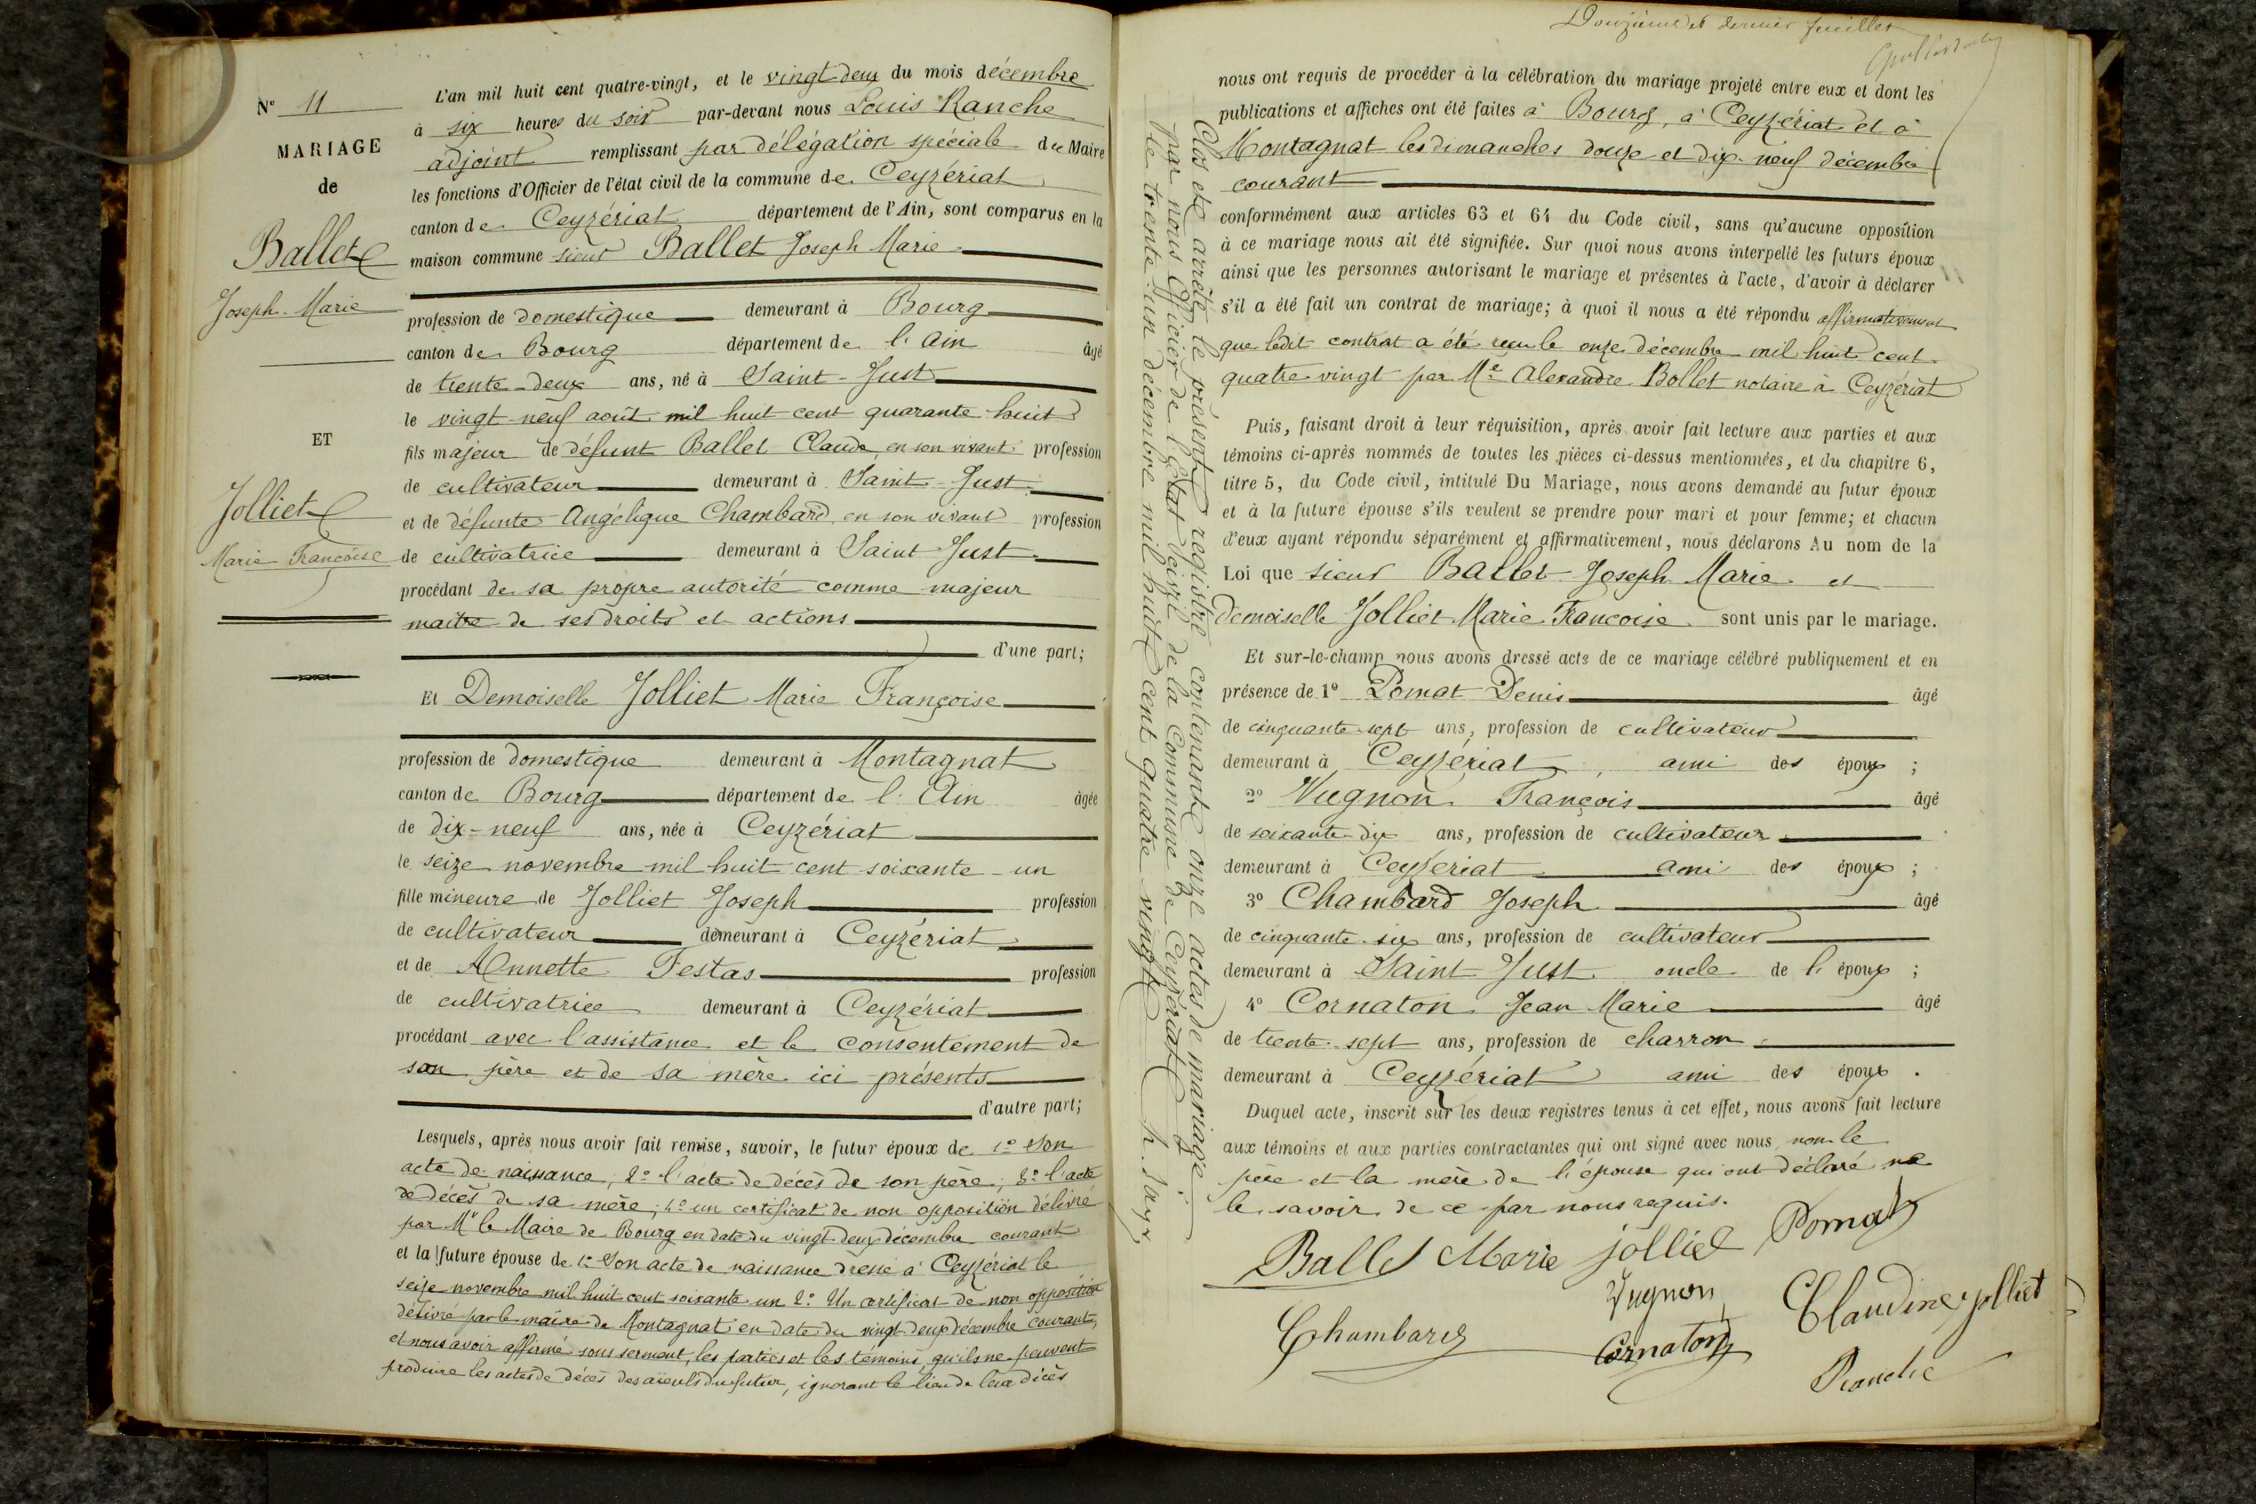 N° 11
MARIAGE
de
Ballet
Joseph Marie
ET
Jolliet
Marie Françoise
L'an mil huit cent quatre-vingt, et le vingt deux du mois décembre
à six heures du soir par-devant nous Louis Ranche
adjoint remplissant par délégation spéciale du Maire
les fonctions d'Officier de l'état civil de la commune de Ceyzériat
canton de Ceyzériat département de l'Ain, sont comparus en la
maison commune sieur Ballet Joseph Marie
profession de domestique demeurant à Bourg
canton de Bourg département de l'Ain âgé
de trente-deux ans, né à Saint-Just
le vingt-neuf août mil huit cent quarante huit
fils majeur de défunt Ballet Claude, en son vivant profession
de cultivateur demeurant à Saint-Just
et de défunte Angélique Chambard, en son vivant profession
de cultivatrice demeurant à Saint-Just
procédant de sa propre autorité comme majeur
maître de ses droits et actions
d'une part;
Et Demoiselle Jolliet Marie Françoise
profession de domestique demeurant à Montagnat
canton de Bourg département de l'Ain âgée
de dix-neuf ans, née à Ceyzériat
le seize novembre mil huit cent soixante-un
fille mineure de Jolliet Joseph profession
de cultivateur demeurant à Ceyzériat
et de Annette Festas profession
de cultivatrice demeurant à Ceyzériat
procédant avec l'assistance et le consentement de
son père et de sa mère ici présents
d'autre part;
Lesquels, après nous avoir fait remise, savoir, le futur époux de 1° Son
acte de naissance, 2° l'acte de décès de son père, 3° l'acte
de décès de sa mère; 4° un certificat de non opposition délivré
par Mr le Maire de Bourg en date du vingt deux décembre courant
et la future épouse de 1° Son acte de naissance dressé à Ceyzériat le
seize novembre mil huit cent soixante un 2° Un certificat de non opposition
délivré par le maire de Montagnat en date du vingt deux décembre courant,
et nous avoir affirmé sous serment, les parties et les témoins, qu'ils ne peuvent
produire les actes de décès des aïeuls du futur, ignorant le lieu de leur décès
Douzième et dernier feuillet
nous ont requis de procéder à la célébration du mariage projeté entre eux et dont les
publications et affiches ont été faites à Bourg, à Ceyzériat et à
Montagnat les dimanches douze et dix-neuf décembre
courant
conformément aux articles 63 et 64 du Code civil, sans qu'aucune opposition
à ce mariage nous ait été signifiée. Sur quoi nous avons interpellé les futurs époux
ainsi que les personnes autorisant le mariage et présentes à l'acte, d'avoir à déclarer
s'il a été fait un contrat de mariage; à quoi il nous a été répondu affirmativement
que ledit contrat a été reçu le onze décembre mil huit cent
quatre vingt par Me Alexandre Bollet notaire à Ceyzériat
Puis, faisant droit à leur réquisition, après avoir fait lecture aux parties et aux
témoins ci-après nommés de toutes les pièces ci-dessus mentionnées, et du chapitre 6,
titre 5, du Code civil, intitulé Du Mariage, nous avons demandé au futur époux
et à la future épouse s'ils veulent se prendre pour mari et pour femme; et chacun
d'eux ayant répondu séparément et affirmativement, nous déclarons Au nom de la
Loi que sieur Ballet Joseph Marie et
Demoiselle Jolliet Marie Françoise sont unis par le mariage.
Et sur-le-champ nous avons dressé acte de ce mariage célébré publiquement et en
présence de 1° Pomat Denis âgé
de cinquante-sept ans, profession de cultivateur
demeurant à Ceyzériat, ami des époux ;
2° Vugnon François âgé
de soixante-dix ans, profession de cultivateur
demeurant à Ceyzériat ami des époux ;
3° Chambard Joseph âgé
de cinquante-six ans, profession de cultivateur
demeurant à Saint-Just oncle de l'époux ;
4° Cornaton Jean Marie âgé
de trente-sept ans, profession de charron
demeurant à Ceyzériat ami des époux .
Duquel acte, inscrit sur les deux registres tenus à cet effet, nous avons fait lecture
aux témoins et aux parties contractantes qui ont signé avec nous, non le
père et la mère de l'épouse qui ont déclaré ne
le savoir de ce par nous requis.
Ballet Marie jolliet Pomat
Vugnon Claudine jolliet
Chambard Cornaton
Ranche
Clos et arrêté le présent registre contenant onze actes de mariage
par nous Officier de l'Etat civil de la commune de Ceyzériat
le trente-un décembre mil huit cent quatre vingt